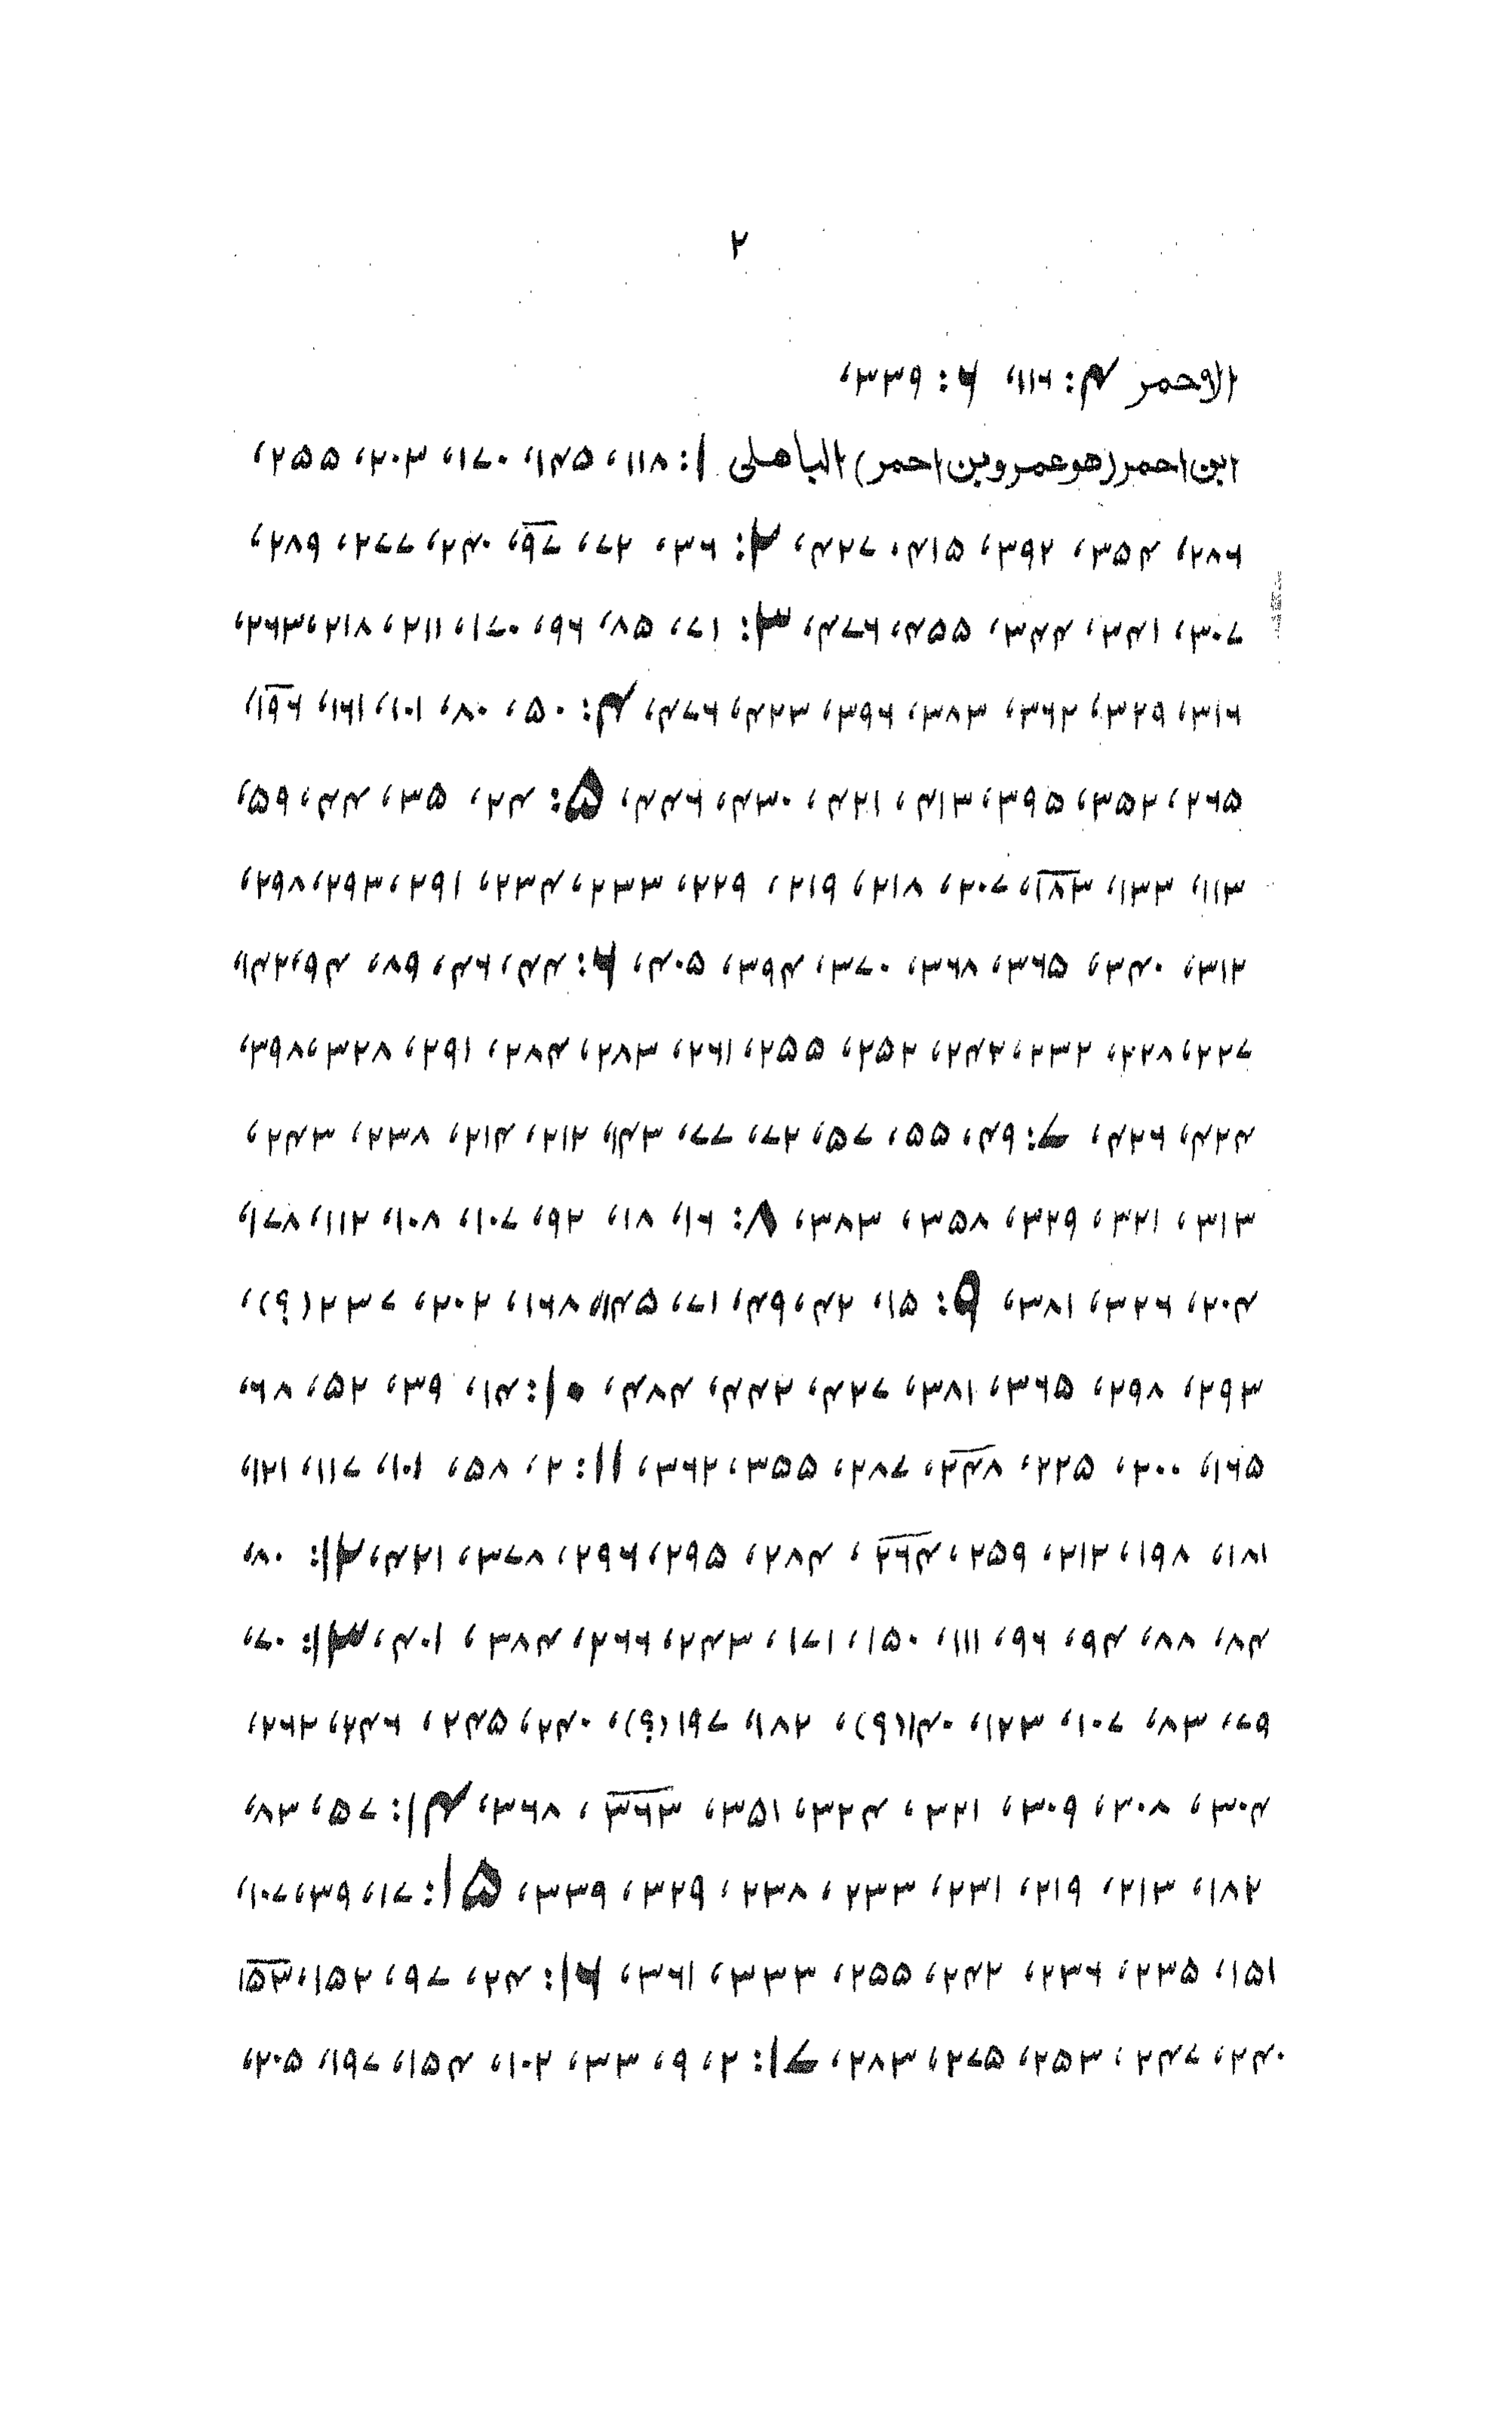 ۲
الاحمر ۴: ۱۱۶، ۶: ۳۳۹،
ابن احمر (هو عمرو بن احمر) الباهلى ۱: ۱۱۸، ۱۴۵، ۱۷۰، ۲۰۳، ۲۵۵،
۲۸۶، ۳۵۴، ۳۹۲، ۴۱۵، ۴۲۷، ۲: ۳۶، ۷۲، ۹۷، ۲۴۰، ۲۷۷، ۲۸۹،
۳۰۷، ۳۴۱، ۳۴۴، ۴۵۵، ۴۷۶، ۳: ۷۱، ۸۵، ۹۶، ۱۷۰، ۲۱۱، ۲۱۸، ۲۶۳،
۳۱۶، ۳۲۹، ۳۶۲، ۳۸۳، ۳۹۶، ۴۲۳، ۴۷۶، ۴: ۵۰، ۸۰، ۱۰۱، ۱۶۱، ۱۹۶،
۲۶۵، ۳۵۲، ۳۹۵، ۴۱۳، ۴۲۱، ۴۳۰، ۴۴۶، ۵: ۲۴، ۳۵، ۴۴، ۵۹،
۱۱۳، ۱۳۳، ۱۸۳، ۲۰۷، ۲۱۸، ۲۱۹، ۲۲۹، ۲۳۳، ۲۳۴، ۲۹۱، ۲۹۳، ۲۹۸،
۳۱۲، ۳۴۰، ۳۶۵، ۳۶۸، ۳۷۰، ۳۹۴، ۴۰۵، ۶: ۴۴، ۴۶، ۸۹، ۹۴، ۱۴۲،
۲۲۷، ۲۲۸، ۲۳۲، ۲۴۲، ۲۵۲، ۲۵۵، ۲۶۱، ۲۸۳، ۲۸۴، ۲۹۱، ۳۲۸، ۳۹۸،
۴۲۴، ۴۲۶، ۷: ۴۹، ۵۵، ۵۷، ۷۲، ۷۷، ۱۴۳، ۲۱۲، ۲۱۴، ۲۳۸، ۲۴۳،
۳۱۳، ۳۲۱، ۳۲۹، ۳۵۸، ۳۸۳، ۸: ۱۶، ۱۸، ۹۲، ۱۰۷، ۱۰۸، ۱۱۲، ۱۷۸،
۲۰۴، ۳۲۶، ۳۸۱، ۹: ۱۵، ۴۲، ۴۹، ۷۱، ۱۴۵، ۱۶۸، ۲۰۲، ۲۳۷ (؟)،
۲۹۳، ۲۹۸، ۳۶۵، ۳۸۱، ۴۲۷، ۴۴۲، ۴۸۴، ۱۰: ۱۴، ۳۹، ۵۲، ۶۸،
۱۶۵، ۲۰۰، ۲۲۵، ۲۴۸، ۲۸۷، ۳۵۵، ۳۶۲، ۱۱: ۲، ۵۸، ۱۰۱، ۱۱۷، ۱۲۱،
۱۸۱، ۱۹۸، ۲۱۲، ۲۵۹، ۲۶۴، ۲۸۴، ۲۹۵، ۲۹۶، ۳۷۸، ۴۲۱، ۱۲: ۸۰،
۸۴، ۸۸، ۹۴، ۹۶، ۱۱۱، ۱۵۰، ۱۷۱، ۲۴۳، ۲۶۶، ۳۸۴، ۴۰۱، ۱۳: ۷۰،
۷۹، ۸۳، ۱۰۷، ۱۲۳، ۱۴۰(؟)، ۱۸۲، ۱۹۷(؟)، ۲۴۰، ۲۴۵، ۲۴۶، ۲۶۲،
۳۰۴، ۳۰۸، ۳۰۹، ۳۲۱، ۳۲۴، ۳۵۱، ۳۶۳، ۳۶۸، ۱۴: ۵۷، ۸۳،
۱۸۲، ۲۱۳، ۲۱۹، ۲۳۱، ۲۳۳، ۲۳۸، ۳۲۹، ۳۳۹، ۱۵: ۱۷، ۳۹، ۱۰۷،
۱۵۱، ۲۳۵، ۲۳۶، ۲۴۲، ۲۵۵، ۳۳۳، ۳۶۱، ۱۶: ۲۴، ۹۷، ۱۵۲، ۱۵۳
۲۴۰، ۲۴۷، ۲۵۳، ۲۷۵، ۲۸۳، ۱۷: ۲، ۹، ۳۳، ۱۰۲، ۱۵۴، ۱۹۷، ۲۰۵،